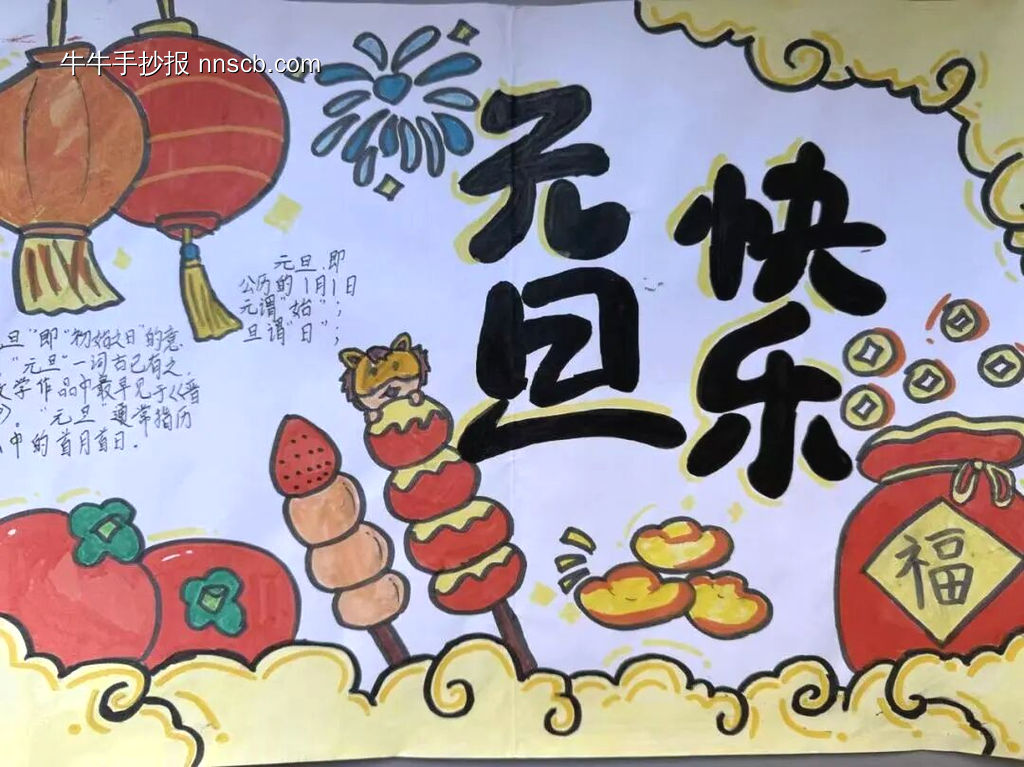 牛牛手抄报 nnscb.com
元旦快乐
元旦,即
公历的1月1日
元谓"始";
旦谓"日";
旦"即"初始之日"的意
"元旦"一词古已有之,
文学作品中最早见于《晋
》。"元旦"通常指历
中的首月首日。
福